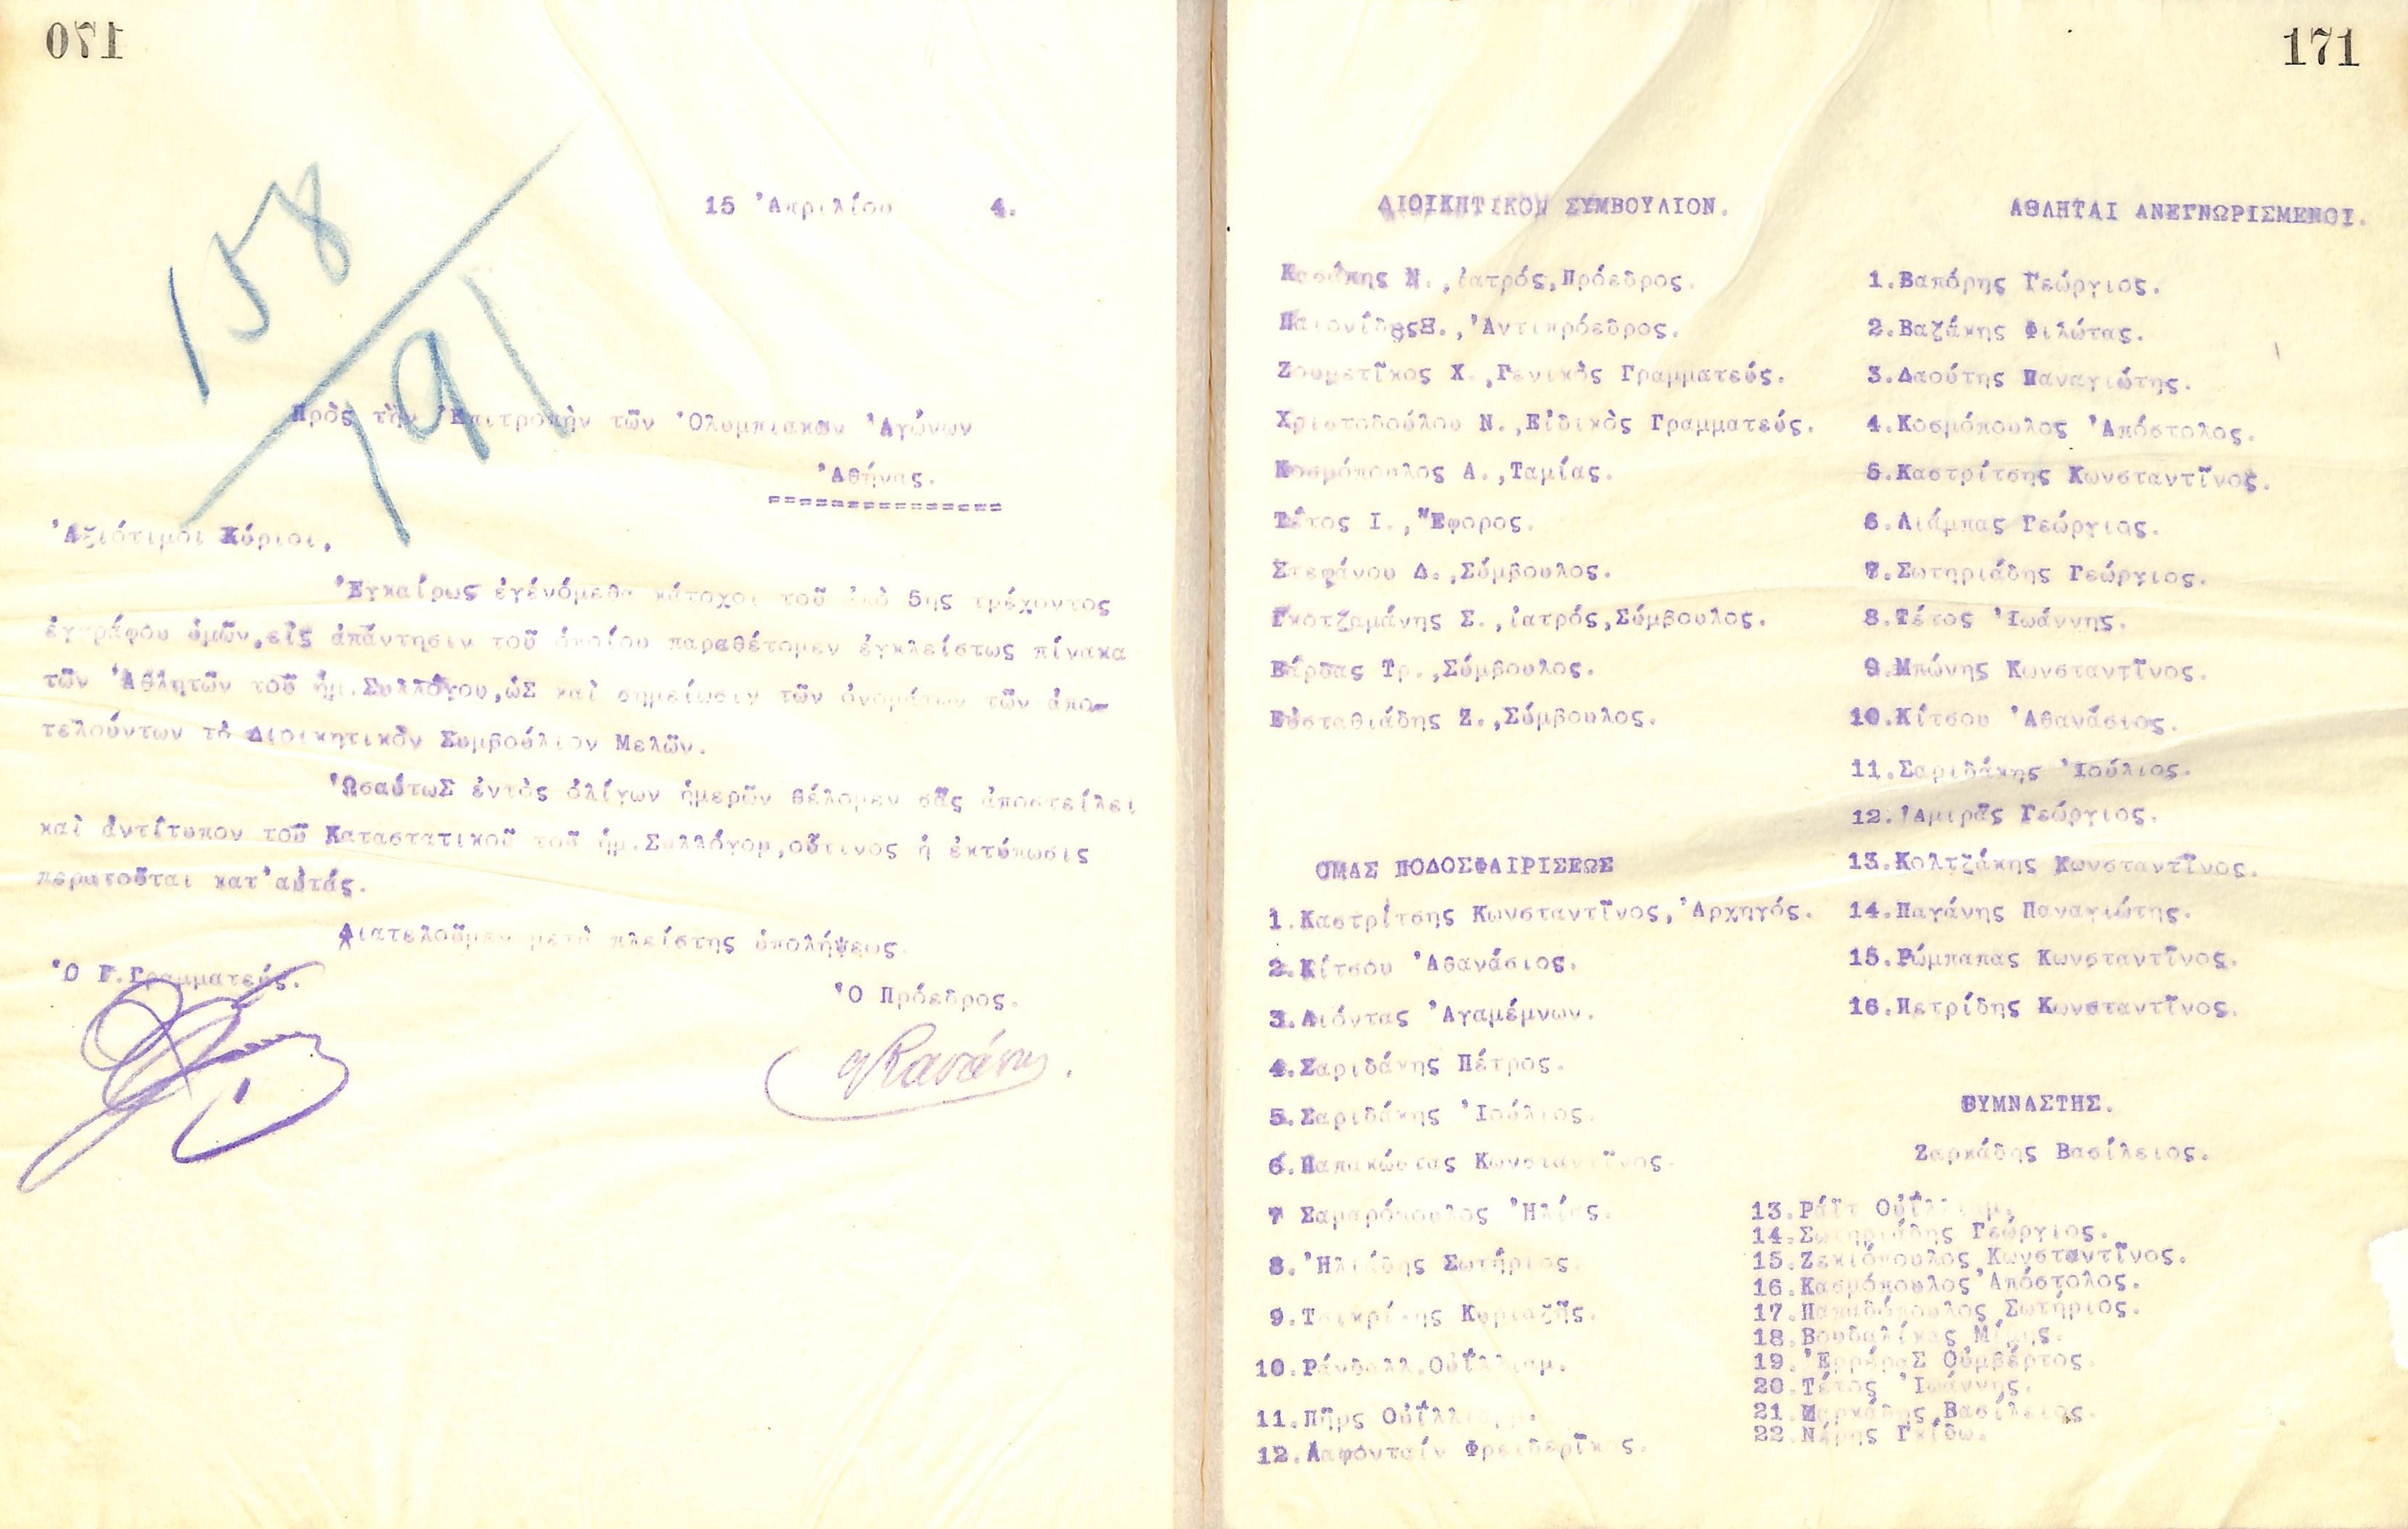 170
158
191
15 Ἀπριλίου 4.
Πρὸς τὴν Ἐπιτροπὴν τῶν Ὀλυμπιακων Ἀγώνων
Ἀθήνας.
===============
Ἀξιότιμοι Κύριοι,
Ἐγκαίρως ἐγένόμεθα κάτοχοι τοῦ ἀπὸ 5ης τρέχοντος
ἐγγράφου ὑμῶν,εἰς ἀπάντησιν τοῦ ὁποίου παραθέτομεν ἐγκλείστως πίνακα
τῶν Ἀθλητῶν τοῦ ἡμ.Συλλόγου,ὡΣ καὶ σημείωσιν τῶν ὀνομάτων τῶν ἀπο-
τελούντων τὸ Διοικητικὸν Συμβούλιον Μελῶν.
ὩσαύτωΣ ἐντὸς ὀλίγων ἡμερῶν θέλομεν σᾶς ἀποστείλει
καὶ ἀντίτυπον τοῦ Καταστατικοῦ τοῦ ἡμ.Συλλόγου,οὗτινος ἡ ἐκτύπωσις
περατοῦται κατ'αὐτάς.
Διατελοῦμεν μετὰ πλείστης ὑπολήψεως.
Ὁ Γ.Γραμματεύς.
Ὁ Πρόεδρος.
171
ΔΙΟΙΚΗΤΙΚΟΝ ΣΥΜΒΟΥΛΙΟΝ.
Κασάπης Ν.,ἰατρός,Πρόεδρος.
Παιονίδης Σ.,Ἀντιπρόεδρος.
Ζουμετῖκος Χ.,Γενικὸς Γραμματεύς.
Χριστοδούλου Ν.,Εἰδικὸς Γραμματεύς.
Κοσμόπουλος Α.,Ταμίας.
Τέτος Ι.,Ἔφορος.
Στεφάνου Δ.,Σύμβουλος.
Γκοτζαμάνης Σ.,ἰατρός,Σύμβουλος.
Βάρδας Τρ.,Σύμβουλος.
Εὐσταθιάδης Ζ.,Σύμβουλος.
ΟΜΑΣ ΠΟΔΟΣΦΑΙΡΙΣΕΩΣ
1.Καστρίτσης Κωνσταντῖνος,Ἀρχηγός.
2.Κίτσου Ἀθανάσιος.
3.Λιόντας Ἀγαμέμνων.
4.Σαριδάκης Πέτρος.
5.Σαριδάκης Ἰούλιος.
6.Παπακώστας Κωνσταντῖνος.
7 Σαμαρόπουλος Ἠλίας.
8.Ἠλιάδης Σωτήριος.
9.Τσικρίκης Κυριαζῆς.
10.Ράνδαλλ.Οὐΐλλιαμ.
11.Πῆρς Οὐΐλλιαμ.
12.Λαφονταίν Φρειδερῖκος.
ΑΘΛΗΤΑΙ ΑΝΕΓΝΩΡΙΣΜΕΝΟΙ.
1.Βαπόρης Γεώργιος.
2.Βαζάκης Φιλώτας.
3.Δαούτης Παναγιώτης.
4.Κοσμόπουλος Ἀπόστολος.
5.Καστρίτσης Κωνσταντῖνος.
6.Λιάμπας Γεώργιος.
7.Σωτηριάδης Γεώργιος.
8.Τέτος Ἰωάννης.
9.Μπώνης Κωνσταντῖνος.
10.Κίτσου Ἀθανάσιος.
11.Σαριδάκης Ἰούλιος.
12.Ἀμιρᾶς Γεώργιος.
13.Κολτζάκης Κωνσταντῖνος.
14.Παγάνης Παναγιώτης.
15.Ρώμπαπας Κωνσταντῖνος.
16.Πετρίδης Κωνσταντῖνος.
ΘΥΜΝΑΣΤΗΣ.
Ζαρκάδης Βασίλειος.
13.Ράϊτ Οὐΐλλιαμ.
14.Σωτηριάδης Γεώργιος.
15.Ζεκιόπουλος Κωνσταντῖνος.
16.Κασμόπουλος Ἀπόστολος.
17.Παπαδόπουλος Σωτήριος.
18.Βουδαλίκας
19.ἘρρέραΣ Οὐμβέρτος.
20.Τέτος Ἰωάννης.
21.Ζαρκάδης Βασίλειος.
22.Γκίδω.